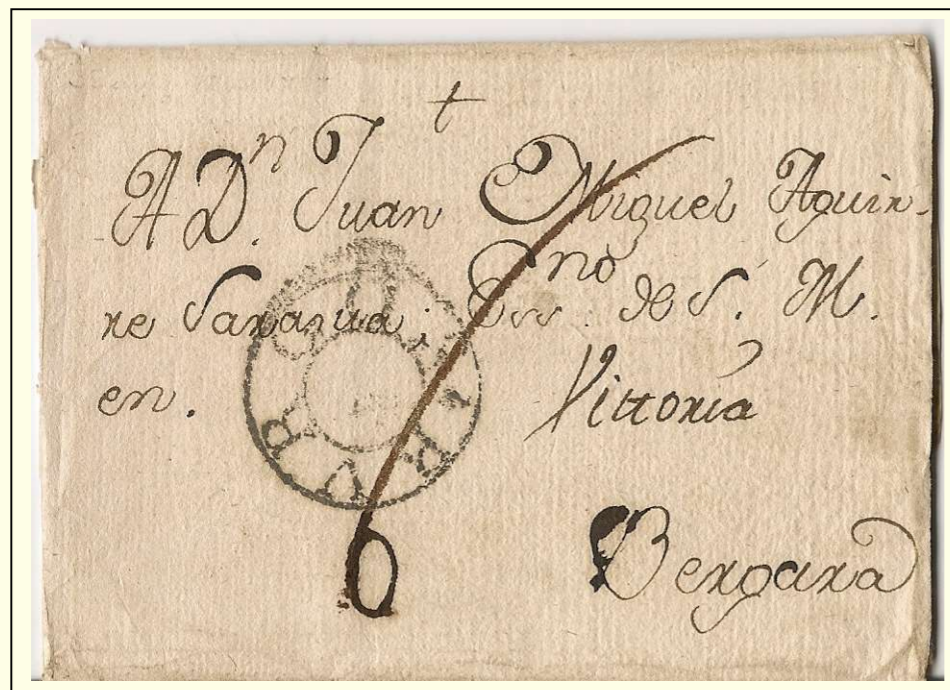 †
A D.ⁿ Juan Miguel Aguir-
re Sarasua; Ess.ⁿᵒ de S. M.
en. Vittoria
6
Bergara